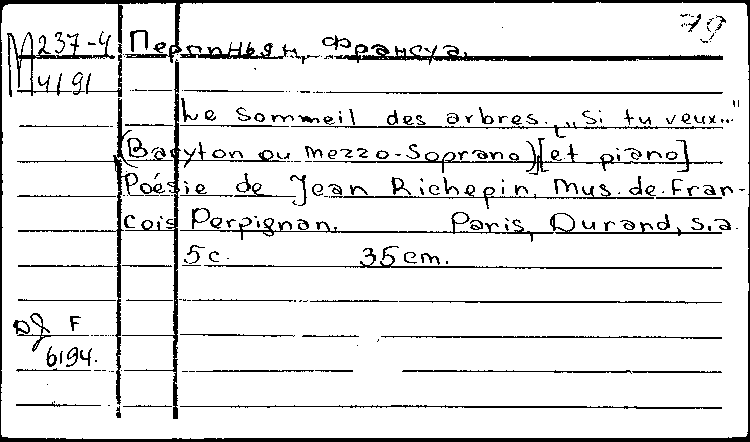 79
М 237-4 Перпиньян, Франсуа.
4191
Le Sommeil des arbres. „Si tu veux..."
(Baryton ou mezzo-Soprano) [et piano]
Poésie de Jean Richepin. Mus. de Fran-
cois Perpignan. Paris, Durand, s.a.
5 c. 35 cm.
F
6194.